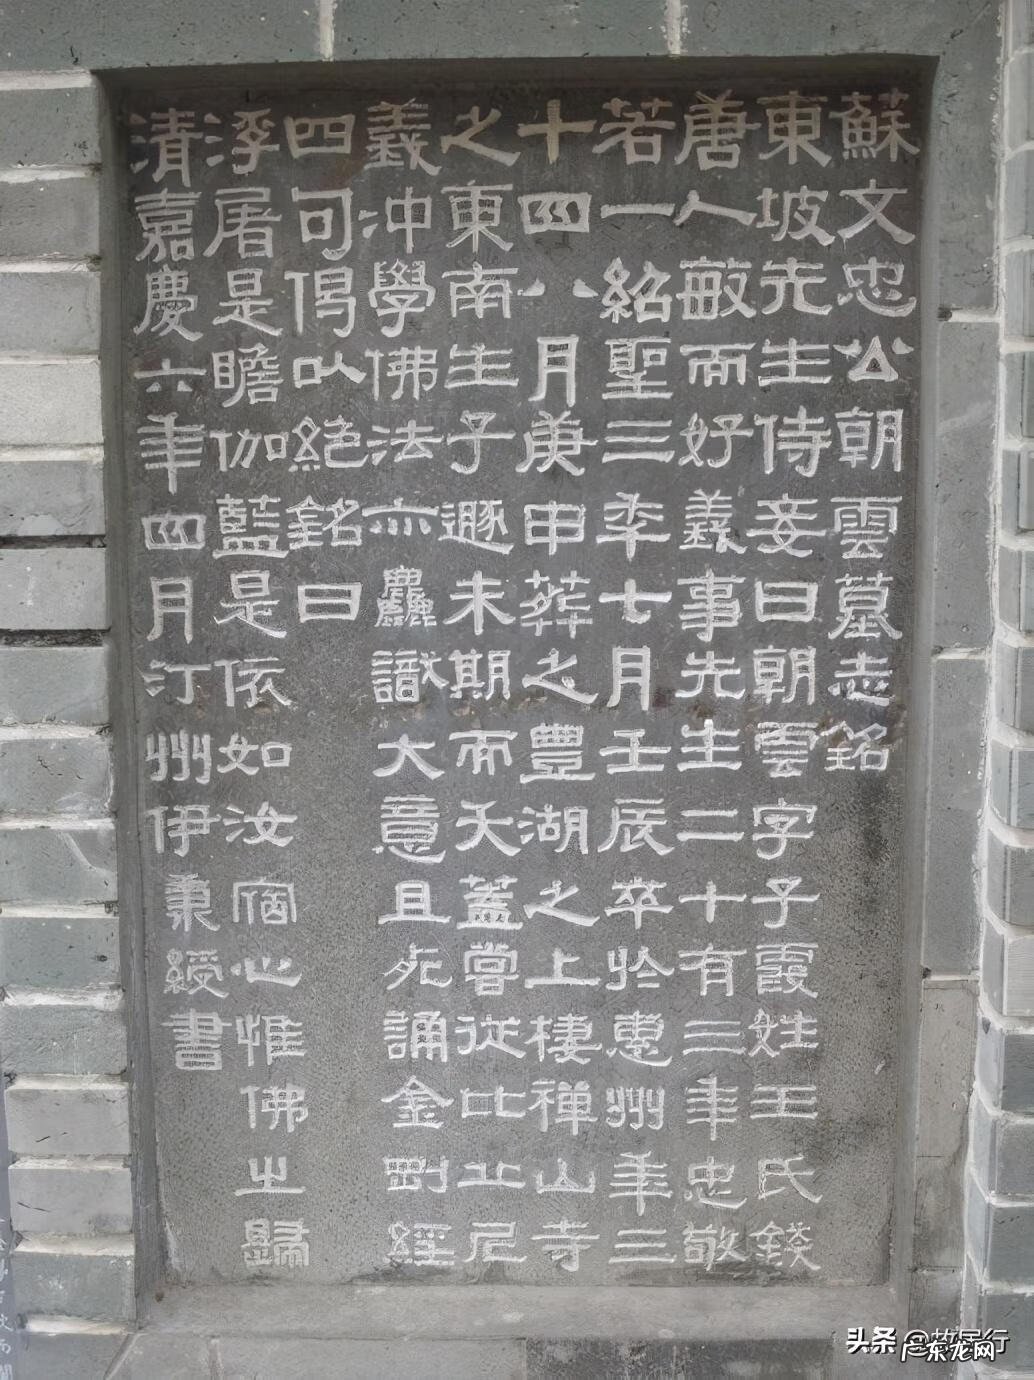 蘇文忠公朝雲墓志銘
東坡先生侍妾曰朝雲字子霞姓王氏錢
唐人敏而好義事先生二十有三年忠敬
若一紹聖三年七月壬辰卒於惠州年三
十四八月庚申葬之豐湖之上棲禪山寺
之東南生子遯未期而夭蓋嘗從比丘尼
義沖學佛法亦麤識大意且死誦金剛經
四句偈以絕銘曰
浮屠是瞻伽藍是依如汝宿心惟佛之歸
清嘉慶六年四月汀州伊秉綬書
头条
广东龙网